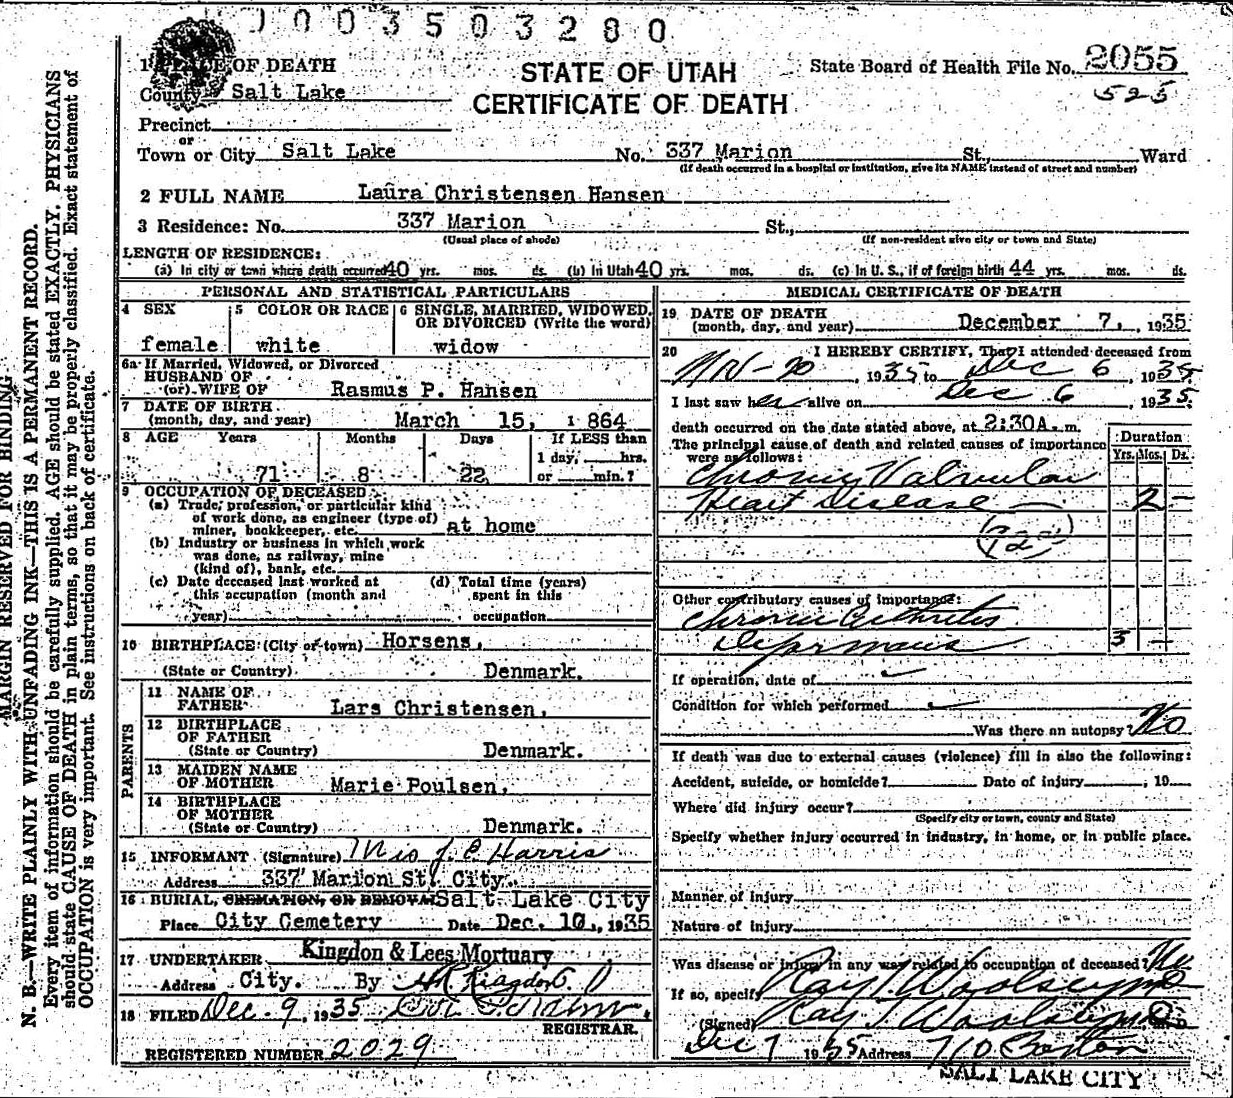 1003503280
1 PLACE OF DEATH
County Salt Lake
STATE OF UTAH
CERTIFICATE OF DEATH
State Board of Health File No. 2055
525
Precinct
or
Town or City Salt Lake No. 337 Marion St., Ward
(If death occurred in a hospital or institution, give its NAME instead of street and number)
2 FULL NAME Laura Christensen Hansen
3 Residence: No. 337 Marion St.,
(Usual place of abode) (If non-resident give city or town and State)
LENGTH OF RESIDENCE:
(a) In city or town where death occurred 40 yrs. mos. ds. (b) In Utah 40 yrs. mos. ds. (c) In U. S., if of foreign birth 44 yrs. mos. ds.
PERSONAL AND STATISTICAL PARTICULARS
4 SEX
female
5 COLOR OR RACE
white
6 SINGLE, MARRIED, WIDOWED,
OR DIVORCED (Write the word)
widow
6a If Married, Widowed, or Divorced
HUSBAND OF
(or) WIFE OF Rasmus P. Hansen
7 DATE OF BIRTH
(month, day, and year) March 15, 1864
8 AGE Years Months Days If LESS than
1 day, hrs.
71 8 22 or min.?
9 OCCUPATION OF DECEASED
(a) Trade, profession, or particular kind
of work done, as engineer (type of)
miner, bookkeeper, etc. at home
(b) Industry or business in which work
was done, as railway, mine
(kind of), bank, etc.
(c) Date deceased last worked at
this occupation (month and
year)
(d) Total time (years)
spent in this
occupation
10 BIRTHPLACE (City or town) Horsens,
(State or Country) Denmark.
PARENTS
11 NAME OF
FATHER Lars Christensen,
12 BIRTHPLACE
OF FATHER
(State or Country) Denmark.
13 MAIDEN NAME
OF MOTHER Marie Poulsen,
14 BIRTHPLACE
OF MOTHER
(State or Country) Denmark.
15 INFORMANT (Signature) Mrs J. C. Harris
Address 337 Marion St. City.
16 BURIAL, CREMATION, OR REMOVAL Salt Lake City
Place City Cemetery Date Dec. 10, 1935
17 UNDERTAKER Kingdon & Lees Mortuary
Address City. By
18 FILED Dec. 9, 1935
REGISTRAR.
REGISTERED NUMBER 2029
MEDICAL CERTIFICATE OF DEATH
19 DATE OF DEATH
(month, day, and year) December 7, 1935
20 I HEREBY CERTIFY, That I attended deceased from
Nov - 20, 1935 to Dec 6, 1935
I last saw her alive on Dec 6, 1935
death occurred on the date stated above, at 2:30A.m.
The principal cause of death and related causes of importance
were as follows:
Duration
Yrs. Mos. Ds.
Chronic Valvular
Heart Disease — 2 -
Other contributory causes of importance:
Chronic Arthritis
Deformans 3 -
If operation, date of
Condition for which performed
Was there an autopsy? No
If death was due to external causes (violence) fill in also the following:
Accident, suicide, or homicide? Date of injury , 19
Where did injury occur?
(Specify city or town, county and State)
Specify whether injury occurred in industry, in home, or in public place.
Manner of injury
Nature of injury
Was disease or injury in any way related to occupation of deceased? No
If so, specify Ray T. Woolsey MD
(Signed) Ray T. Woolsey
Dec 7 1935 Address 710 Boston
SALT LAKE CITY
MARGIN RESERVED FOR BINDING
N. B.—WRITE PLAINLY WITH UNFADING INK—THIS IS A PERMANENT RECORD.
Every item of information should be carefully supplied. AGE should be stated EXACTLY. PHYSICIANS
should state CAUSE OF DEATH in plain terms, so that it may be properly classified. Exact statement of
OCCUPATION is very important. See instructions on back of certificate.